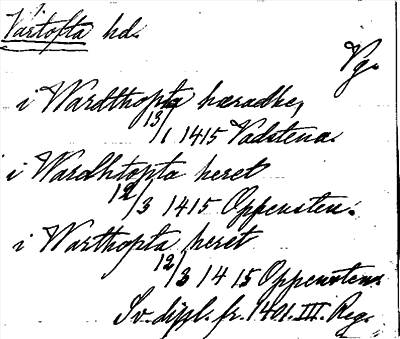 Vartofta hd.
Vg.
i Wardthopta hæradhe,
13/1 1415 Vadstena.
i Wardhtopta heret
12/3 1415 Oppensten.
i Warthopta heret
12/3 1415 Oppensten.
Sv. dipl. fr. 1401. III. Reg.